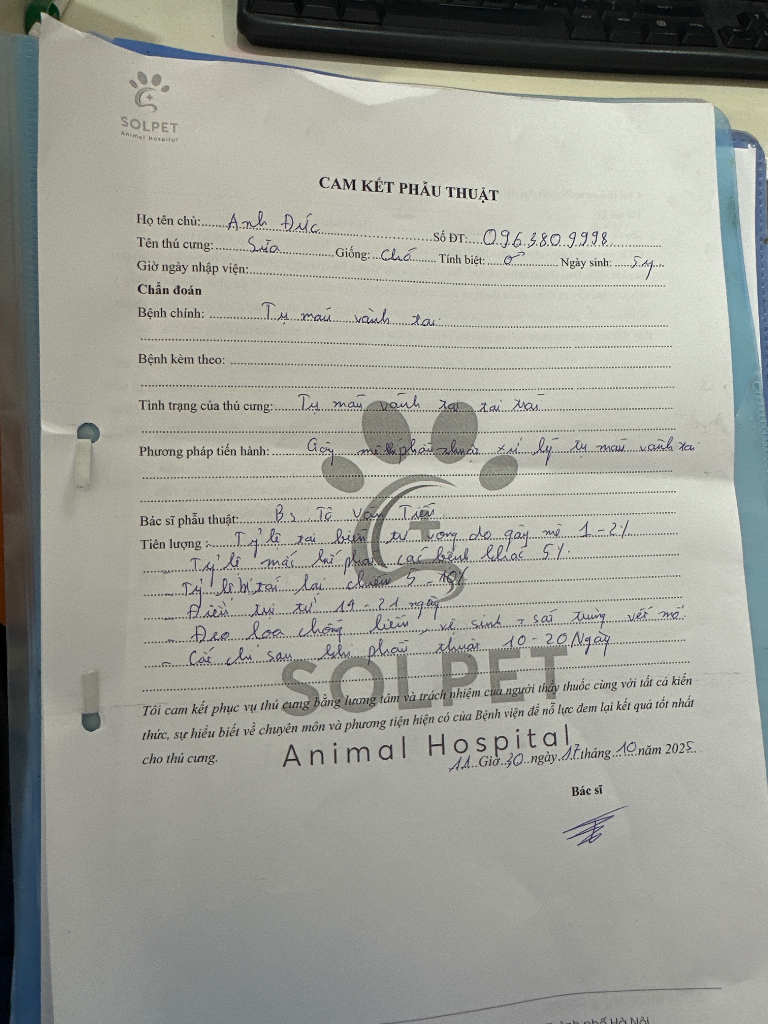 SOLPET
Animal Hospital
CAM KẾT PHẪU THUẬT
Họ tên chủ: Anh Đức Số ĐT: 096.380.9998
Tên thú cưng: Sữa Giống: Chó Tính biệt: ♂ Ngày sinh: 5y
Giờ ngày nhập viện:
Chẩn đoán
Bệnh chính: Tụ máu vành tai
Bệnh kèm theo:
Tình trạng của thú cưng: Tụ máu vành tai tai trái
Phương pháp tiến hành: Gây mê phẫu thuật xử lý tụ máu vành tai
Bác sĩ phẫu thuật: Bs Tô Văn Tiến
Tiên lượng: - Tỷ lệ tai biến tử vong do gây mê 1-2%
- Tỷ lệ mắc kế phát các bệnh khác 5%
- Tỷ lệ bị tái lại chiếm 5-10%
- Điều trị từ 14-21 ngày
- Đeo loa chống liếm, vệ sinh, sát trùng vết mổ
- Cắt chỉ sau khi phẫu thuật 10-20 Ngày
SOLPET
Tôi cam kết phục vụ thú cưng bằng lương tâm và trách nhiệm của người thầy thuốc cùng với tất cả kiến
thức, sự hiểu biết về chuyên môn và phương tiện hiện có của Bệnh viện để nỗ lực đem lại kết quả tốt nhất
cho thú cưng.
Animal Hospital
11 Giờ 30 ngày 17 tháng 10 năm 2025
Bác sĩ
phố Hà Nội